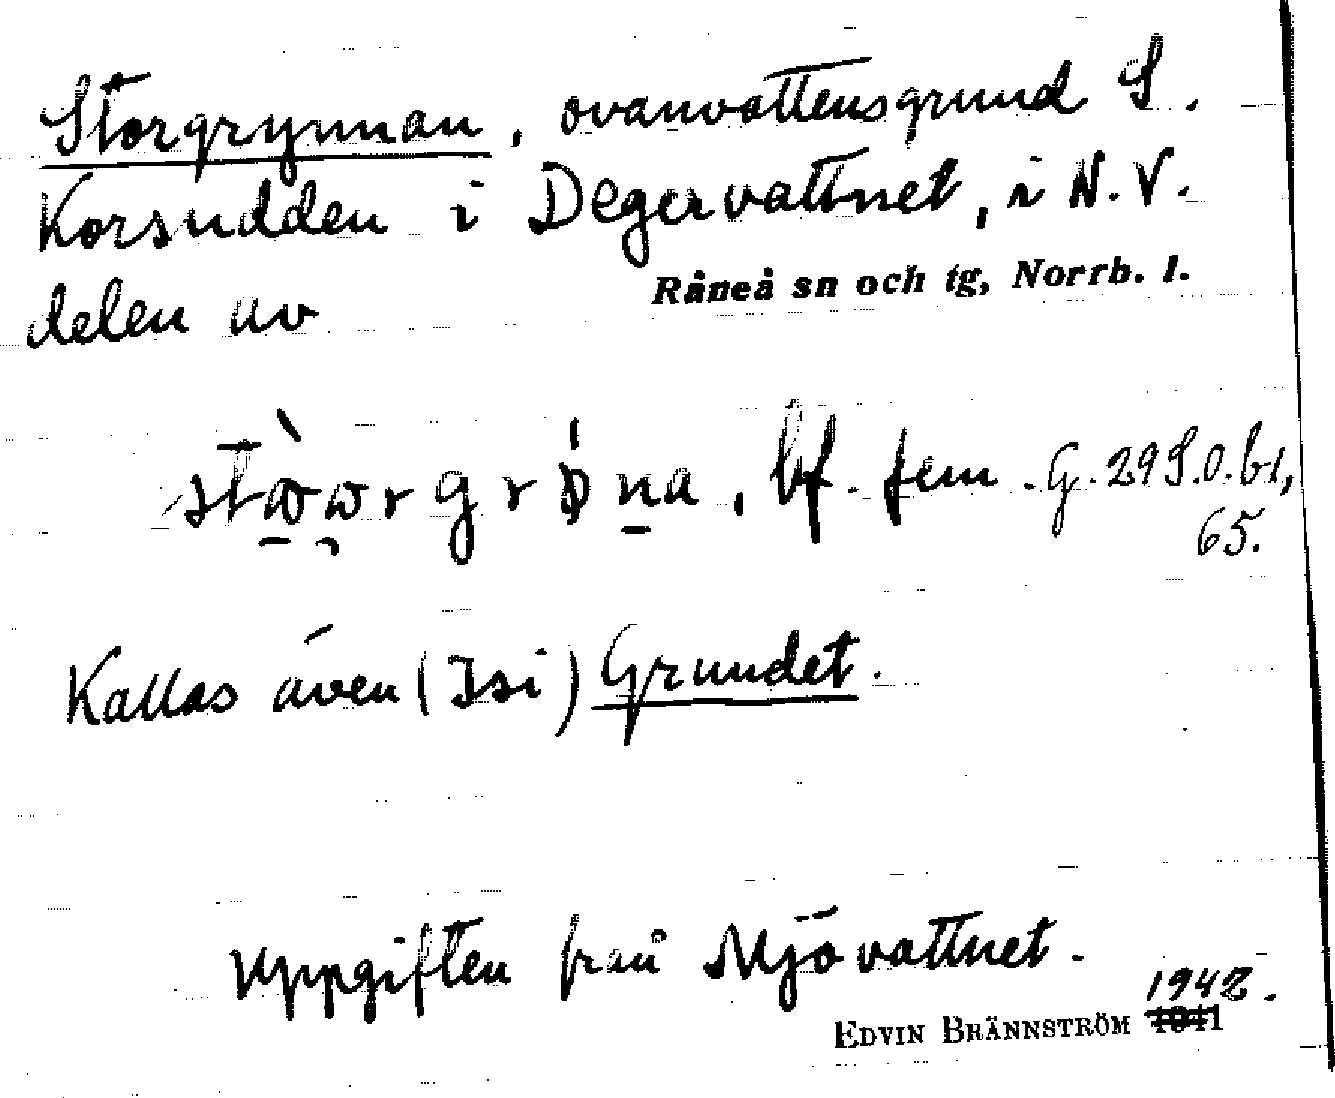 Storgrynnan, ovanvattensgrund S.
Korsudden i Degervattnet, i N.V.
delen av Råneå sn och tg, Norrb. l.
bf. fem. G. 29 S.O. b1,
65.
Kallas även (Isi) Grundet.
Uppgiften från Mjövattnet.
1942.
EDVIN BRÄNNSTRÖM 1941